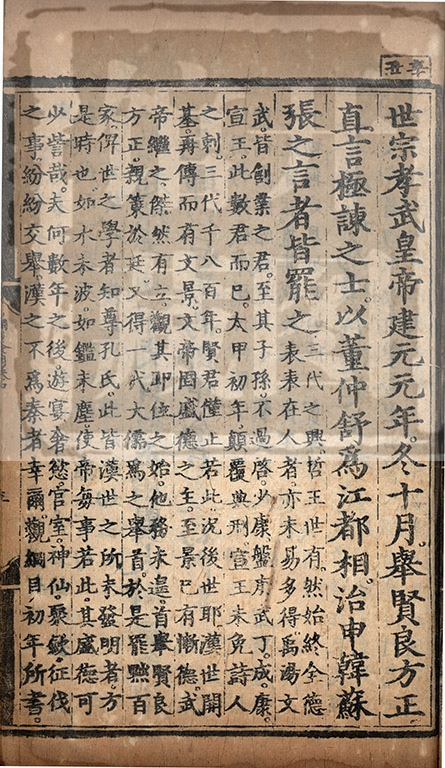 世宗孝武皇帝建元元年。冬十月。舉賢良方正
直言極諫之士。以董仲舒爲江都相。治申韓蘇
張之言者皆罷之
三代之興。哲王世有。然始終全德
表表在人者。亦未易多得。禹湯文
武。皆創業之君。至其子孫。不過啓。少康。盤庚。武丁。成。康。
宣王。此數君而已。太甲初年。顚覆典刑。宣王未免詩人
之刺。三代千八百年。賢君僅止若此。況後世耶。漢世開
基。再傳而有文景。文帝固盛德之主。至景已有慚德。武
帝繼之。傑然有立。觀其卽位之始。他務未遑。首舉賢良
方正。親策於廷。又得一代大儒爲之舉首。於是罷黜百
家。俾世之學者知尊孔氏。此皆漢世之所未發明者。方
是時也。如水未波。如鑑未塵。使帝每事若此。其盛德可
少訾哉。夫何數年之後。遊宴奢慾。官室。神仙。聚歛。征伐
之事。紛紛交舉。漢之不爲秦者幸爾。觀綱目初年所書。